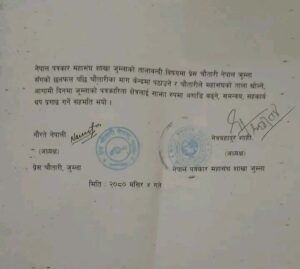 नेपाल पत्रकार महासंघ शाखा जुम्लाको तालाबन्दी विषयमा प्रेस चौतारी नेपाल जुम्ला
संगको छलफल पछि चौतारीका माग केन्द्रमा पठाउने र चौतारीले महासंघको ताला खोल्ने,
आगामी दिनमा जुम्लाको पत्रकारिता क्षेत्रलाई साझा रुपमा अगाडि बढ्ने, समन्वय, सहकार्य
थप प्रगाढ गर्ने सहमति भयो ।
गौरते नेपाली
(अध्यक्ष)
प्रेस चौतारी, जुम्ला
शाही
(अध्यक्ष)
नेपाल पत्रकार महासंघ शाखा जुम्ला
मिति : २०८० मंसिर ४ गते